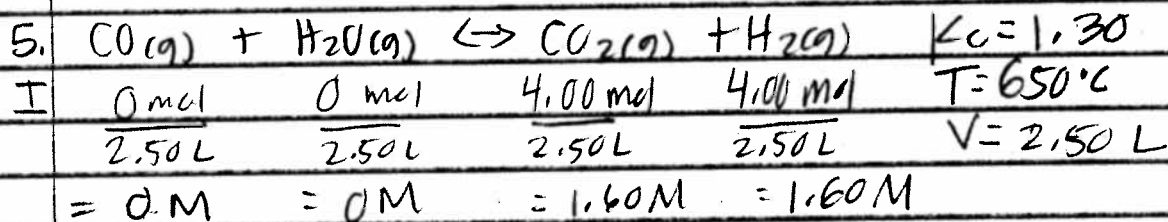 5. CO(g) + H2O(g) <-> CO2(g) + H2(g) Kc = 1.30
I 0 mol/2.50L 0 mol/2.50L 4.00 mol/2.50L 4.00 mol/2.50L T = 650°C
V = 2.50 L
= 0 M = 0M = 1.60M = 1.60M